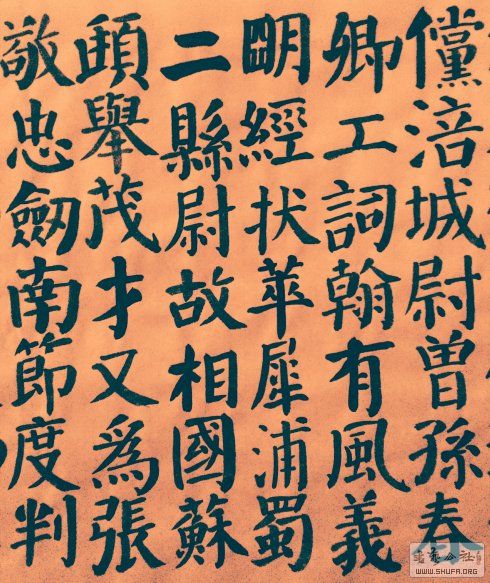 儻涪城尉曾孫春
卿工詞翰有風義
明經拔萃犀浦蜀
二縣尉故相國蘇
頲舉茂才又為張
敬忠劒南節度判
WWW.SHUFA.ORG